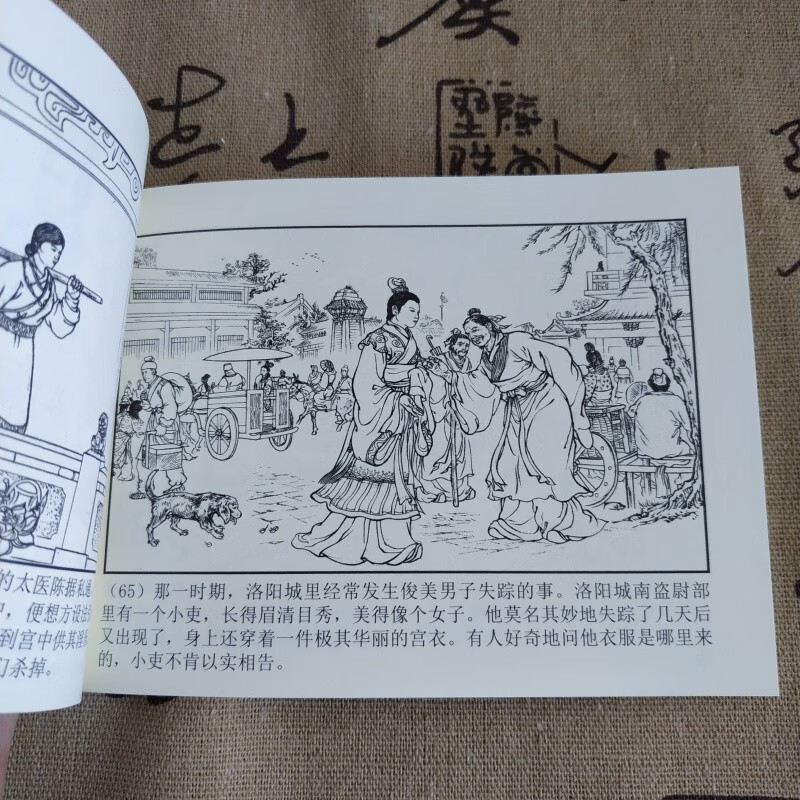 的太医陈据私通
，便想方设法
到宫中供其淫
们杀掉。
（65）那一时期，洛阳城里经常发生俊美男子失踪的事。洛阳城南盗尉部
里有一个小吏，长得眉清目秀，美得像个女子。他莫名其妙地失踪了几天后
又出现了，身上还穿着一件极其华丽的宫衣。有人好奇地问他衣服是哪里来
的，小吏不肯以实相告。